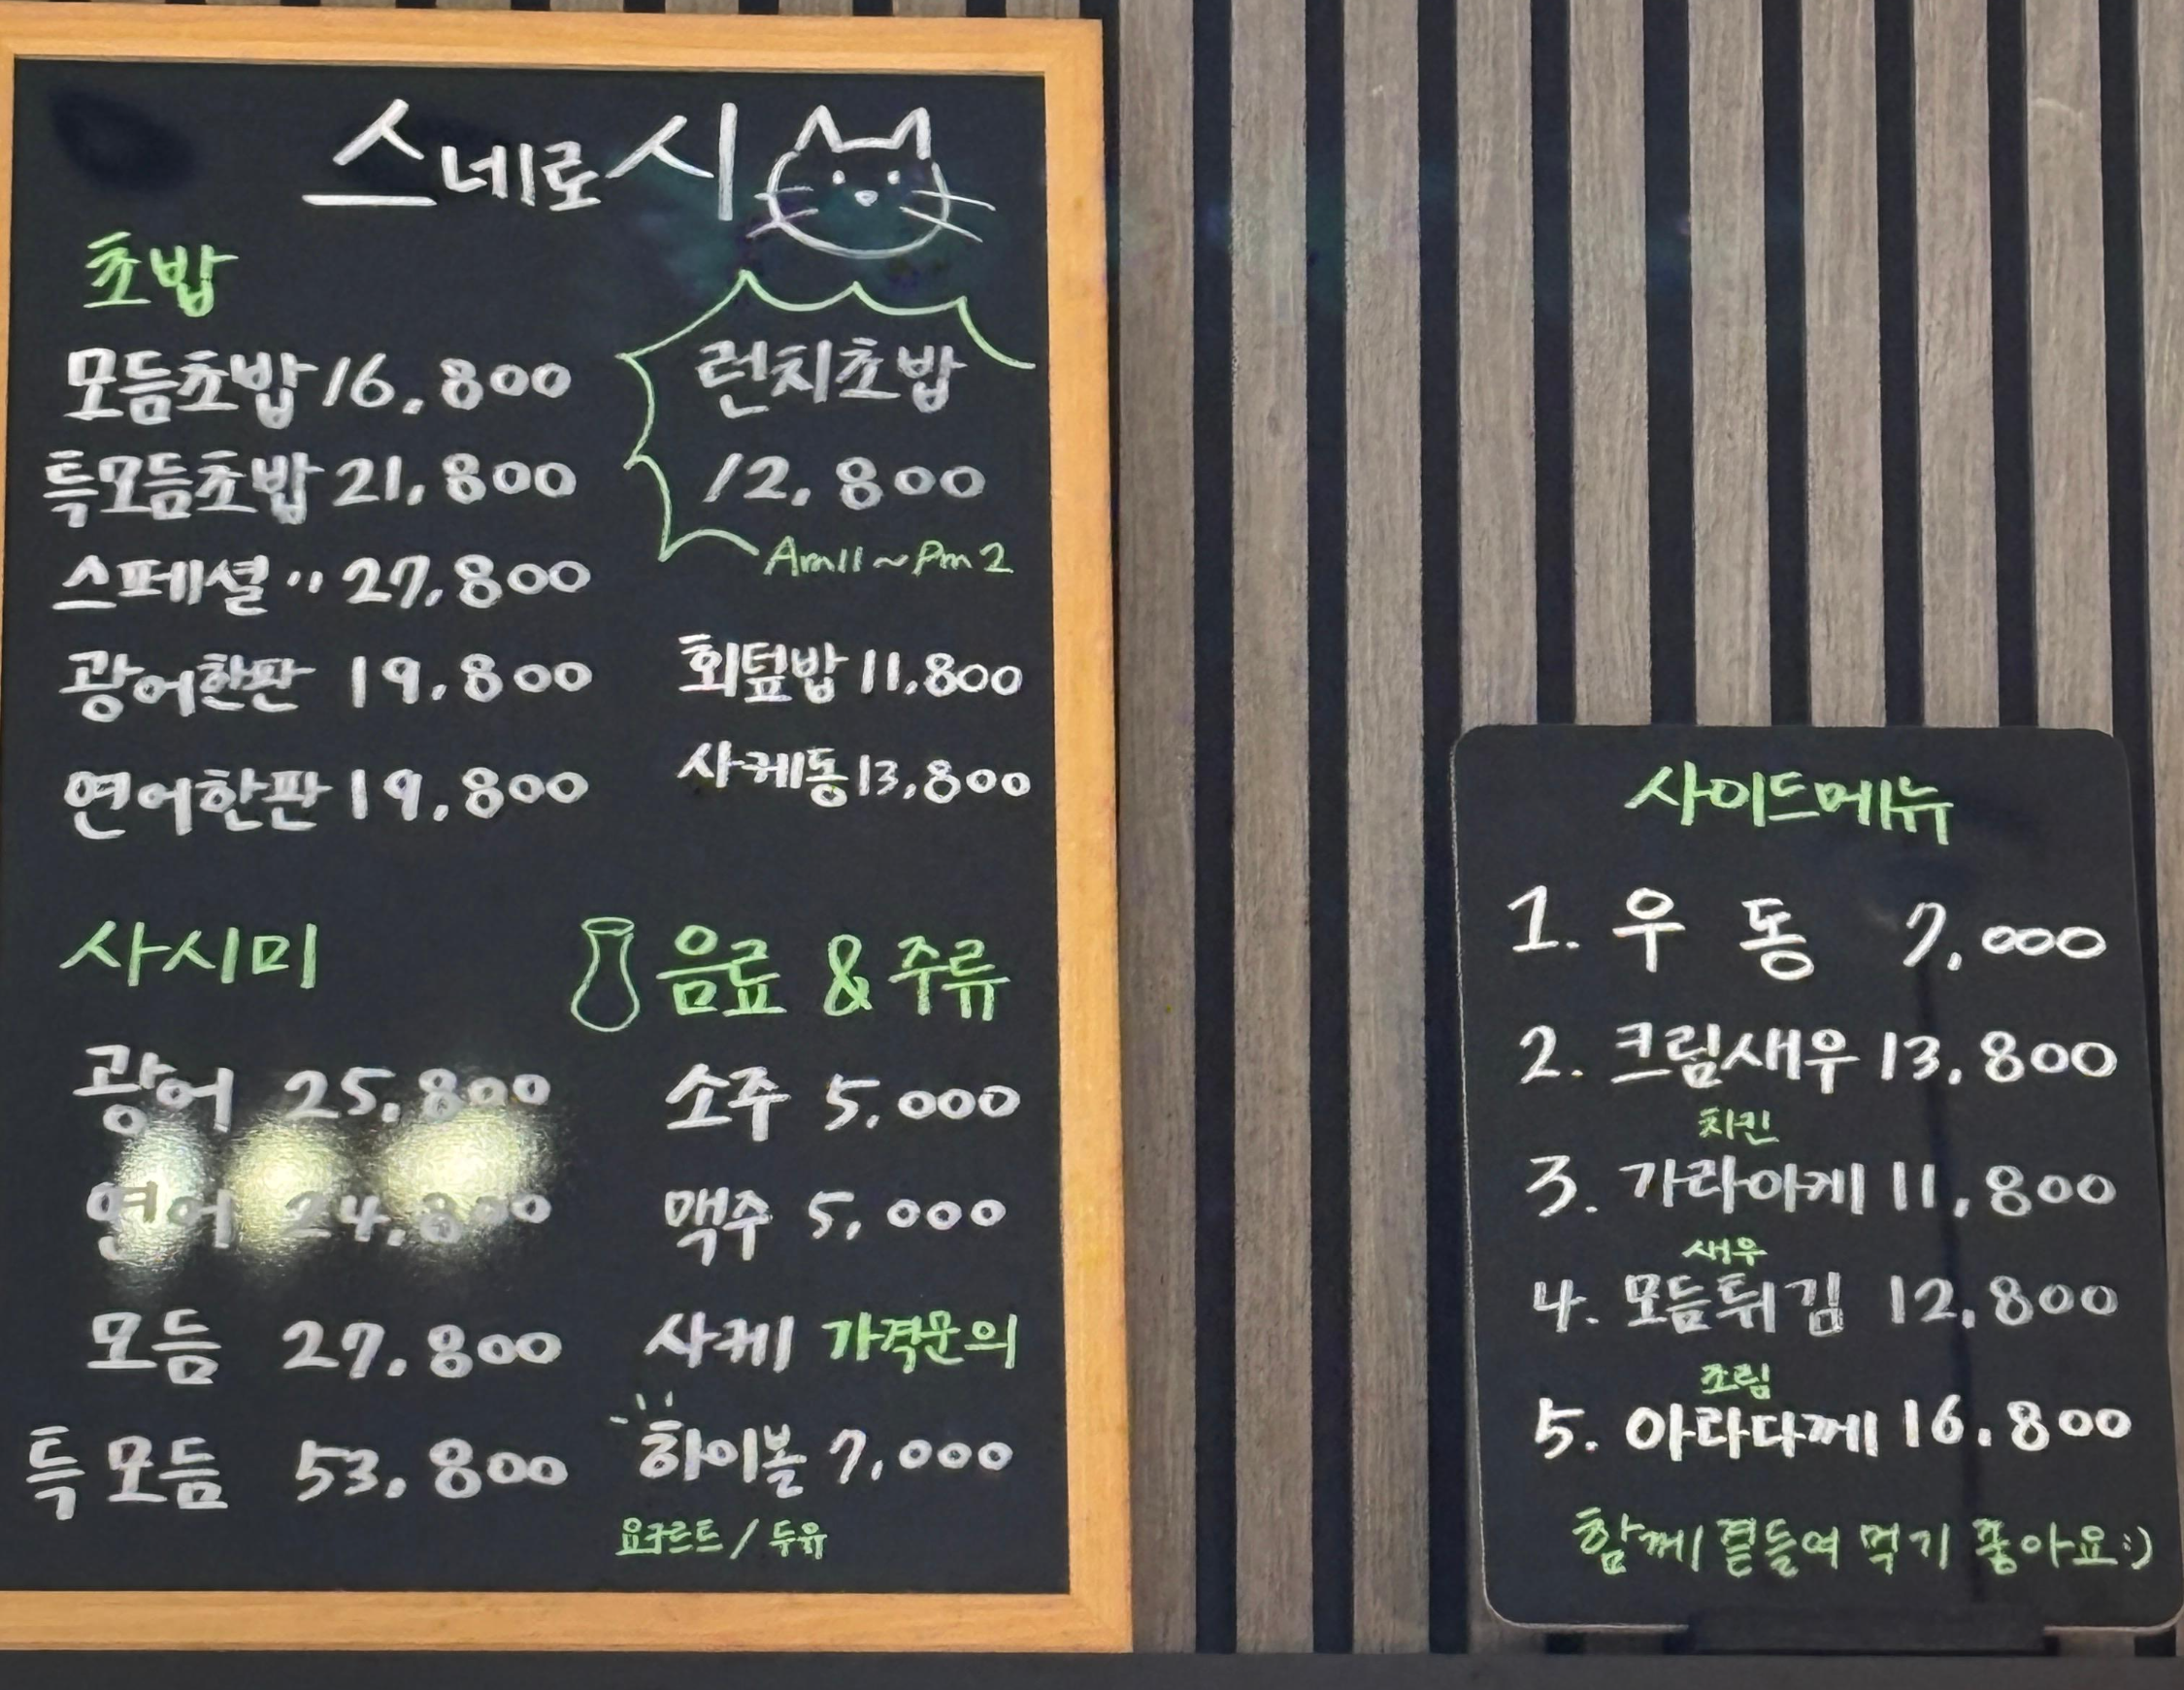 스네로시
초밥
모듬초밥 16,800
특모듬초밥 21,800
스페셜 〃 27,800
광어한판 19,800
연어한판 19,800
런치초밥
12,800
Am11~Pm2
회덮밥 11,800
사케동 13,800
사시미
광어 25,800
연어 24,800
모듬 27,800
특모듬 53,800
음료 & 주류
소주 5,000
맥주 5,000
사케 가격문의
하이볼 7,000
요구르트 / 두유
사이드메뉴
1. 우동 7,000
2. 크림새우 13,800
치킨
3. 가라아게 11,800
새우
4. 모듬튀김 12,800
조림
5. 아라다께 16,800
함께 곁들여 먹기 좋아요:)